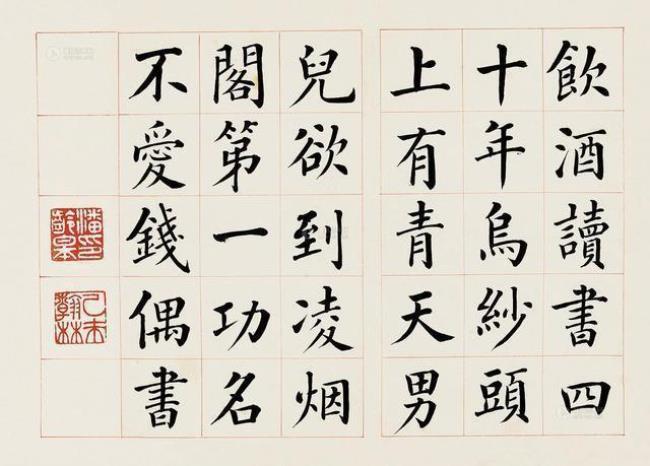 飲酒讀書四
十年烏紗頭
上有青天男
兒欲到凌烟
閣第一功名
不愛錢偶書
潘齡皋印
己未翰林